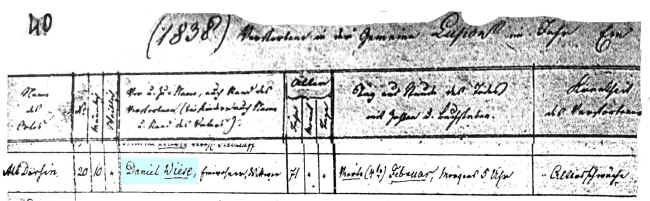 40
(1838) Verstorbene in der Gemeine im Jahr Ein
Name des Ortes
No.
Männlich
Weiblich
Vor u. Zu-Name, auch Stand des Verstorbenen (bei Kindern auch Name u. Stand des Vaters).
Alter
Jahr
Monat
Tage
Tag und Stunde des Todes mit Zahlen u. Buchstaben.
Krankheit des Verstorbenen
Alt 20 10 " Daniel Wiese, Einwohner, Wittwer 71 " " Vierte (4te) Februar, Morgens 5 Uhr Altersschwäche